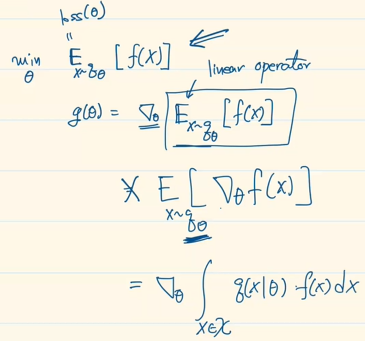 loss(θ)
"
min_θ E_{x~q_θ} [f(x)]
linear operator
g(θ) = ∇_θ E_{x~q_θ} [f(x)]
X E_{x~q_θ} [∇_θ f(x)]
= ∇_θ ∫_{x∈X} q(x|θ) f(x) dx